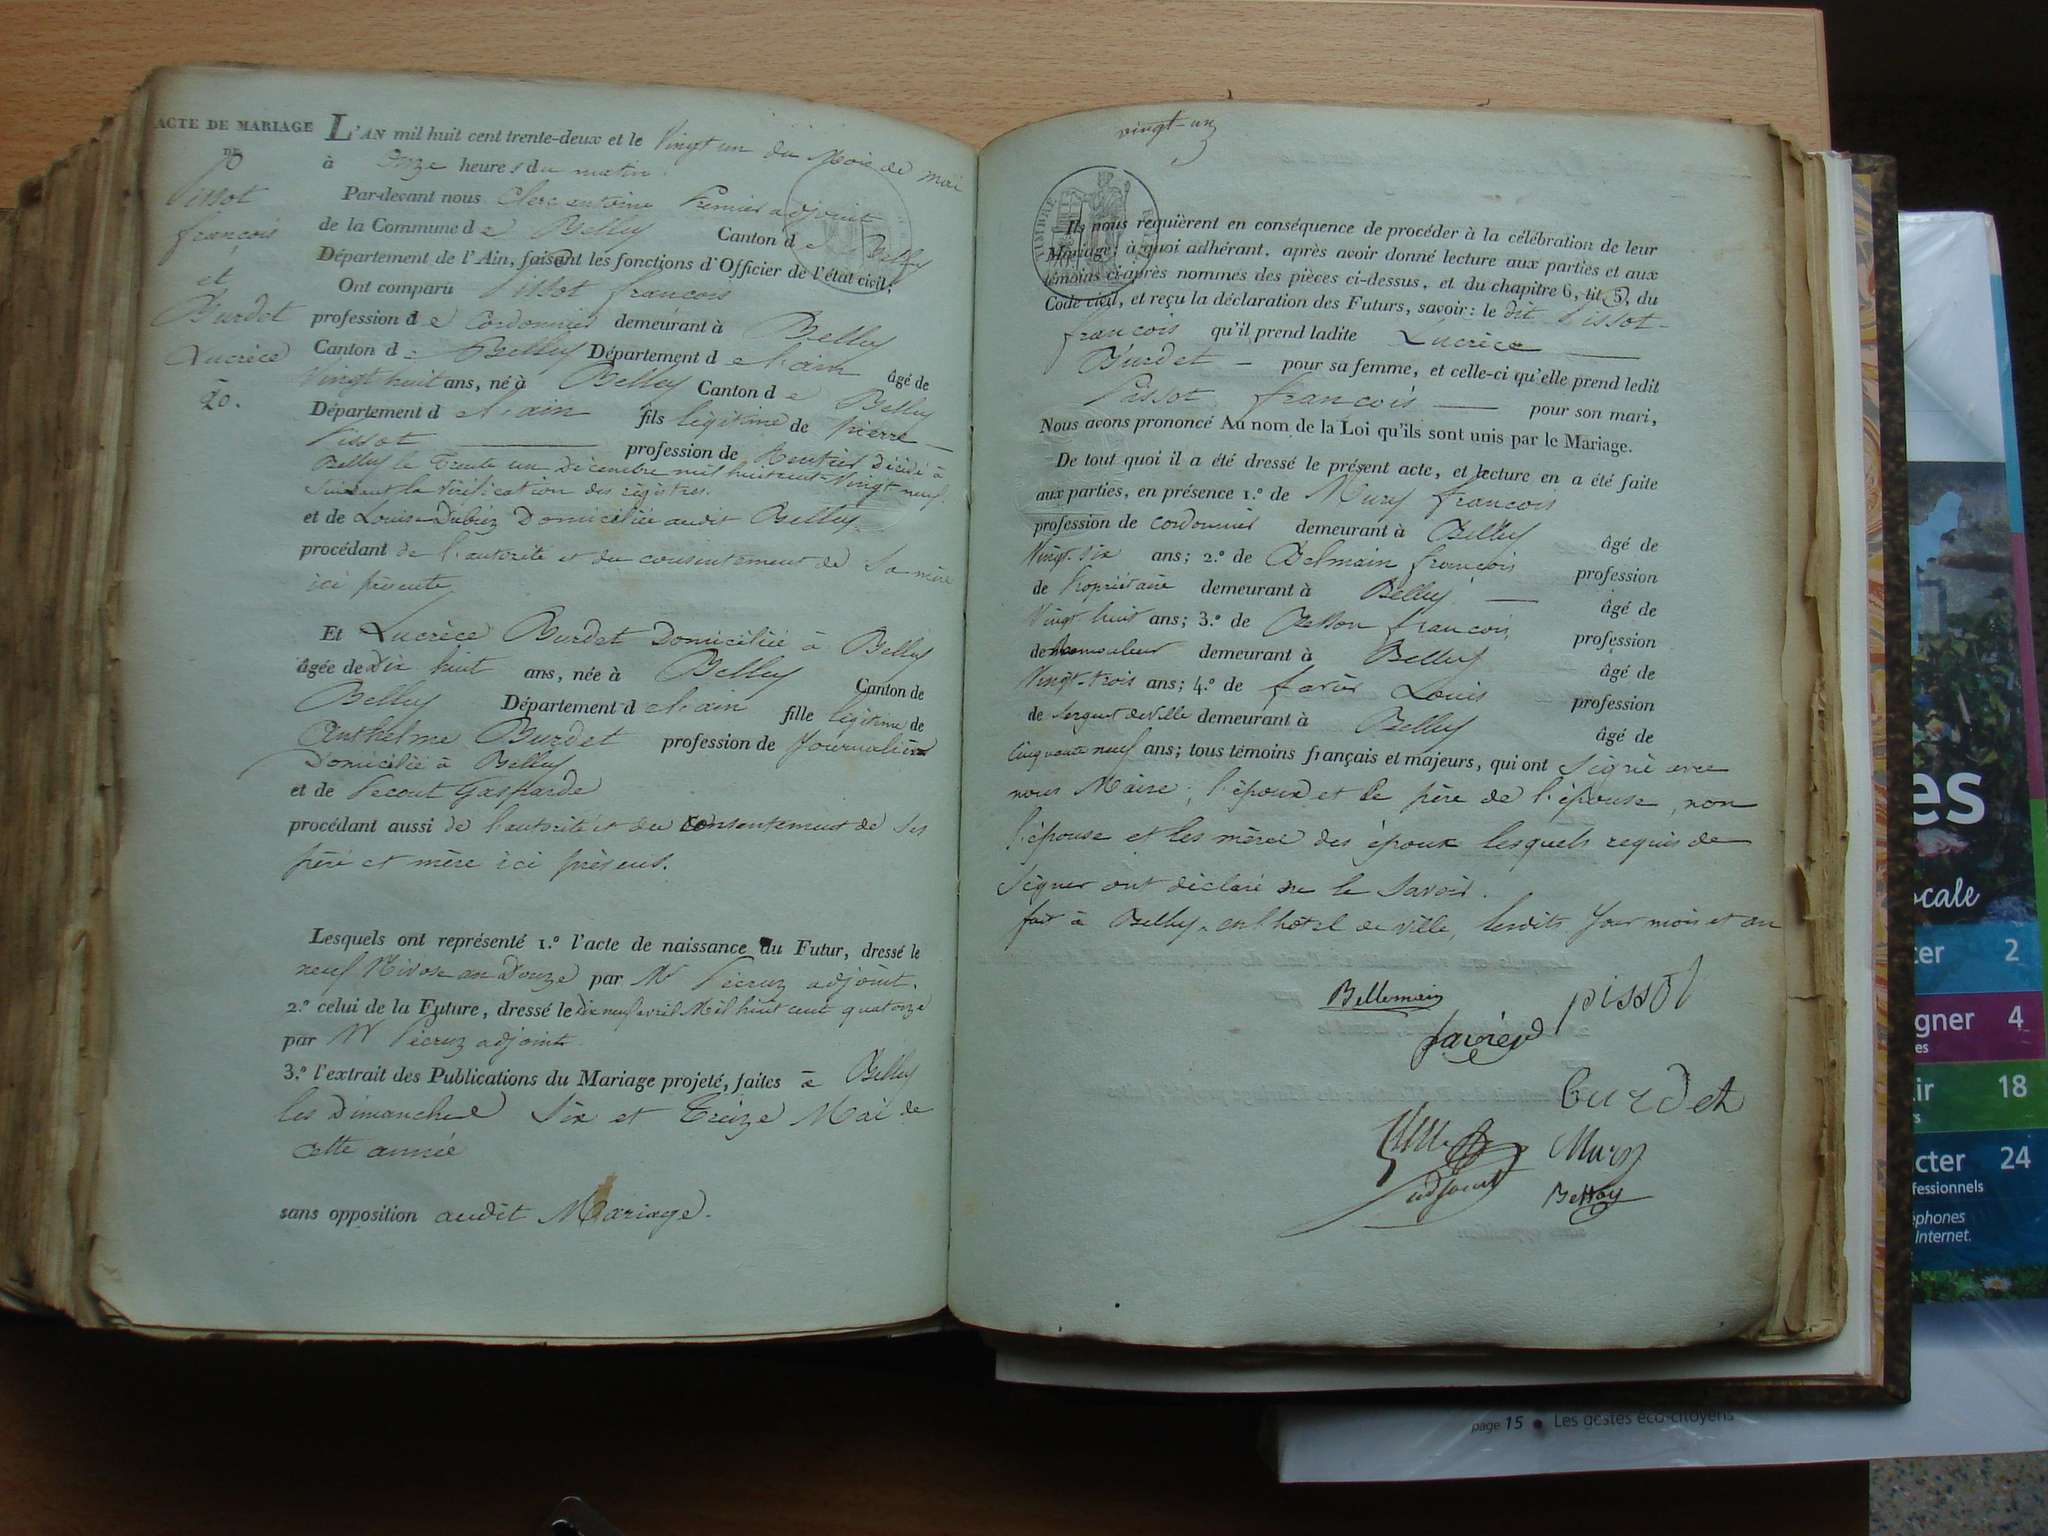 ACTE DE MARIAGE
DE
Pissot
françois
et
Burdet
Lucrèce
20.
L'AN mil huit cent trente-deux et le Vingt un du Mois de mai
à Onze heures du matin.
Par-devant nous Clerc antoine Premier adjoint
de la Commune de Belley Canton de Belley
Département de l'Ain, faisant les fonctions d'Officier de l'état civil;
Ont comparu Pissot françois
profession de Cordonnier demeurant à Belley
Canton de Belley Département de l'ain âgé de
Vingt huit ans, né à Belley Canton de Belley
Département de l'ain fils légitime de Pierre
Pissot profession de Rentier décédé à
Belley le Trente un Décembre mil huit cent Vingt neuf
suivant la Vérification des régistres.
et de Louise Dubiez Domiciliée audit Belley
procédant de l'autorité et du consentement de Sa mère
ici présente
Et Lucrèce Burdet Domiciliée à Belley
âgée de Dix huit ans, née à Belley Canton de
Belley Département de l'ain fille légitime de
Anthelme Burdet profession de Journalier
Domicilié à Belley
et de Pecout Gasparde
procédant aussi de l'autorité et du consentement de Ses
père et mère ici présens.
Lesquels ont représenté 1.º l'acte de naissance du Futur, dressé le
neuf Nivose an Douze par Mr Pécruz adjoint.
2.º celui de la Future, dressé le Dix neuf avril Mil huit cent quatorze
par Mr Pécruz adjoint
3.º l'extrait des Publications du Mariage projeté, faites à Belley
les Dimanches Six et Treize Mai de
cette année
sans opposition audit Mariage.
vingt-un
TIMBRE
Ils nous requièrent en conséquence de procéder à la célébration de leur
Mariage; à quoi adhérant, après avoir donné lecture aux parties et aux
témoins ci-après nommés des pièces ci-dessus, et du chapitre 6, tit. 5, du
Code civil, et reçu la déclaration des Futurs, savoir: le dit Pissot
françois qu'il prend ladite Lucrèce
Burdet pour sa femme, et celle-ci qu'elle prend ledit
Pissot françois pour son mari,
Nous avons prononcé Au nom de la Loi qu'ils sont unis par le Mariage.
De tout quoi il a été dressé le présent acte, et lecture en a été faite
aux parties, en présence 1.º de Mury françois
profession de cordonnier demeurant à Belley âgé de
Vingt-six ans; 2.º de Belmain françois profession
de Propriétaire demeurant à Belley âgé de
Vingt huit ans; 3.º de françois profession
de demeurant à Belley âgé de
Vingt-trois ans; 4.º de Louis profession
de Sergent de Ville demeurant à Belley âgé de
Cinquante neuf ans; tous témoins français et majeurs, qui ont Signé avec
nous Maire, l'époux et le père de l'épouse, non
l'épouse et les mères des époux lesquels requis de
Signer ont déclaré ne le Savoir.
fait à Belley, en l'hôtel de ville, lesdits Jour mois et an
Bellemain
pissot
Burdet
adjoint
Mury
es
ocale
2
gner 4
ir 18
cter 24
fessionnels
éphones
Internet.
page 15 • Les gestes éco-citoyens